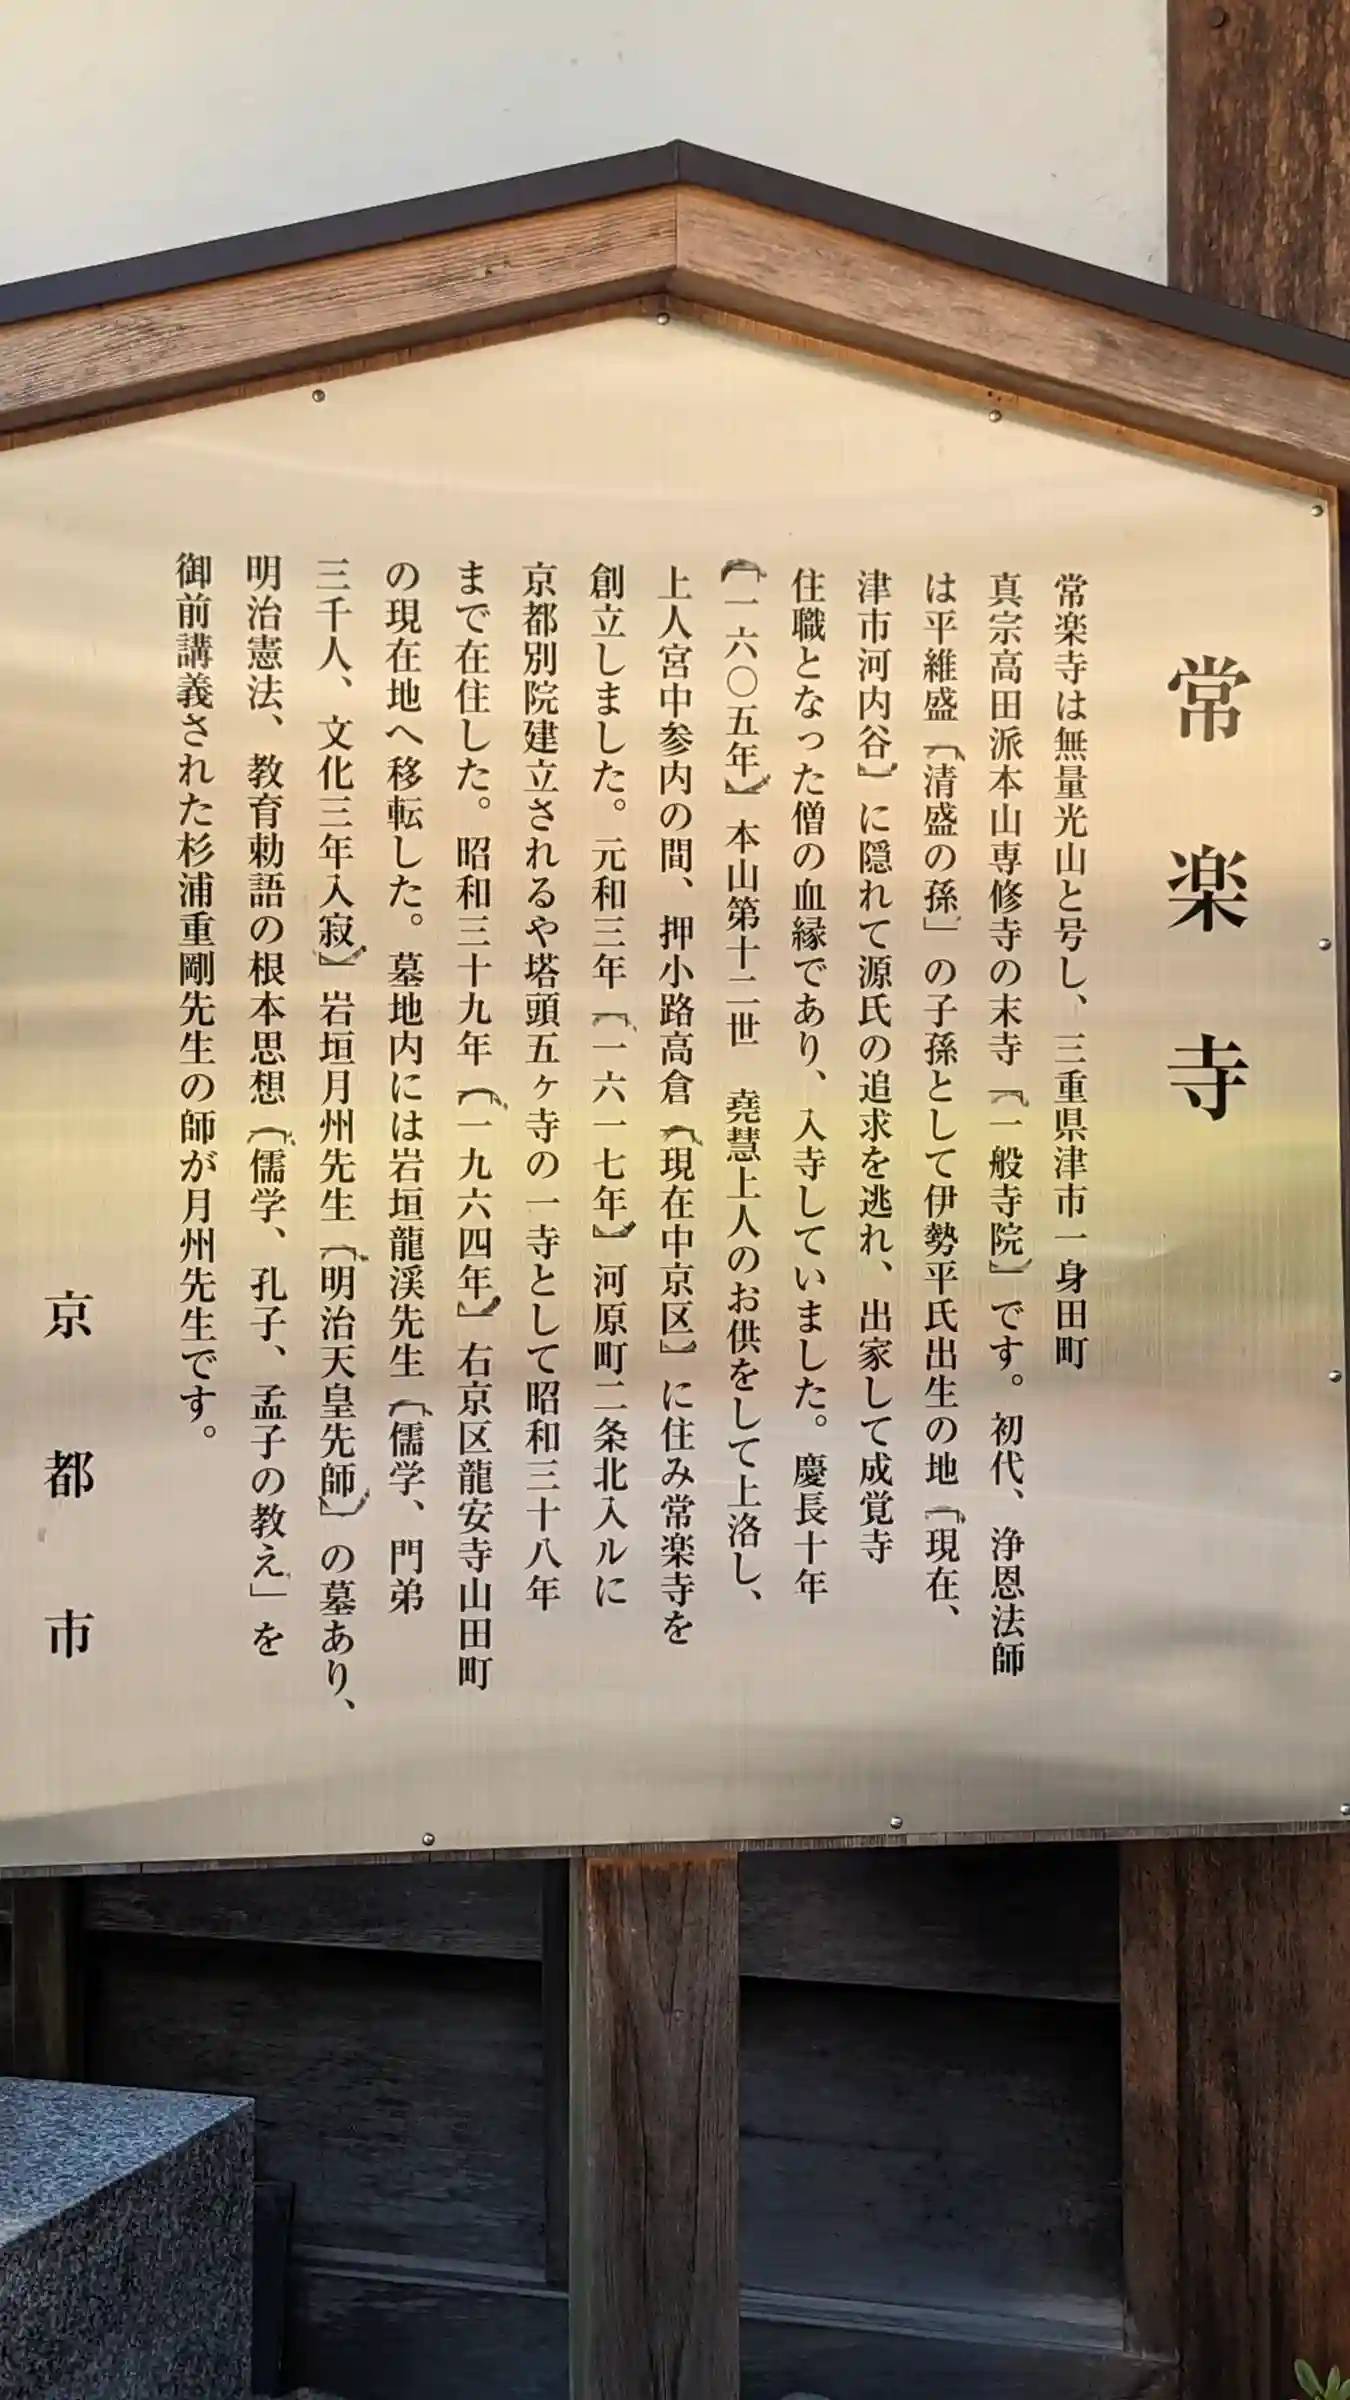 常楽寺
常楽寺は無量光山と号し、三重県津市一身田町
真宗高田派本山専修寺の末寺「一般寺院」です。初代、浄恩法師
は平維盛「清盛の孫」の子孫として伊勢平氏出生の地「現在、
津市河内谷」に隠れて源氏の追求を逃れ、出家して成覚寺
住職となった僧の血縁であり、入寺していました。慶長十年
「一六〇五年」本山第十二世　堯慧上人のお供をして上洛し、
上人宮中参内の間、押小路高倉「現在中京区」に住み常楽寺を
創立しました。元和三年「一六一七年」河原町二条北入ルに
京都別院建立されるや塔頭五ヶ寺の一寺として昭和三十八年
まで在住した。昭和三十九年「一九六四年」右京区龍安寺山田町
の現在地へ移転した。墓地内には岩垣龍渓先生「儒学、門弟
三千人、文化三年入寂」岩垣月州先生「明治天皇先師」の墓あり、
明治憲法、教育勅語の根本思想「儒学、孔子、孟子の教え」を
御前講義された杉浦重剛先生の師が月州先生です。
京都市